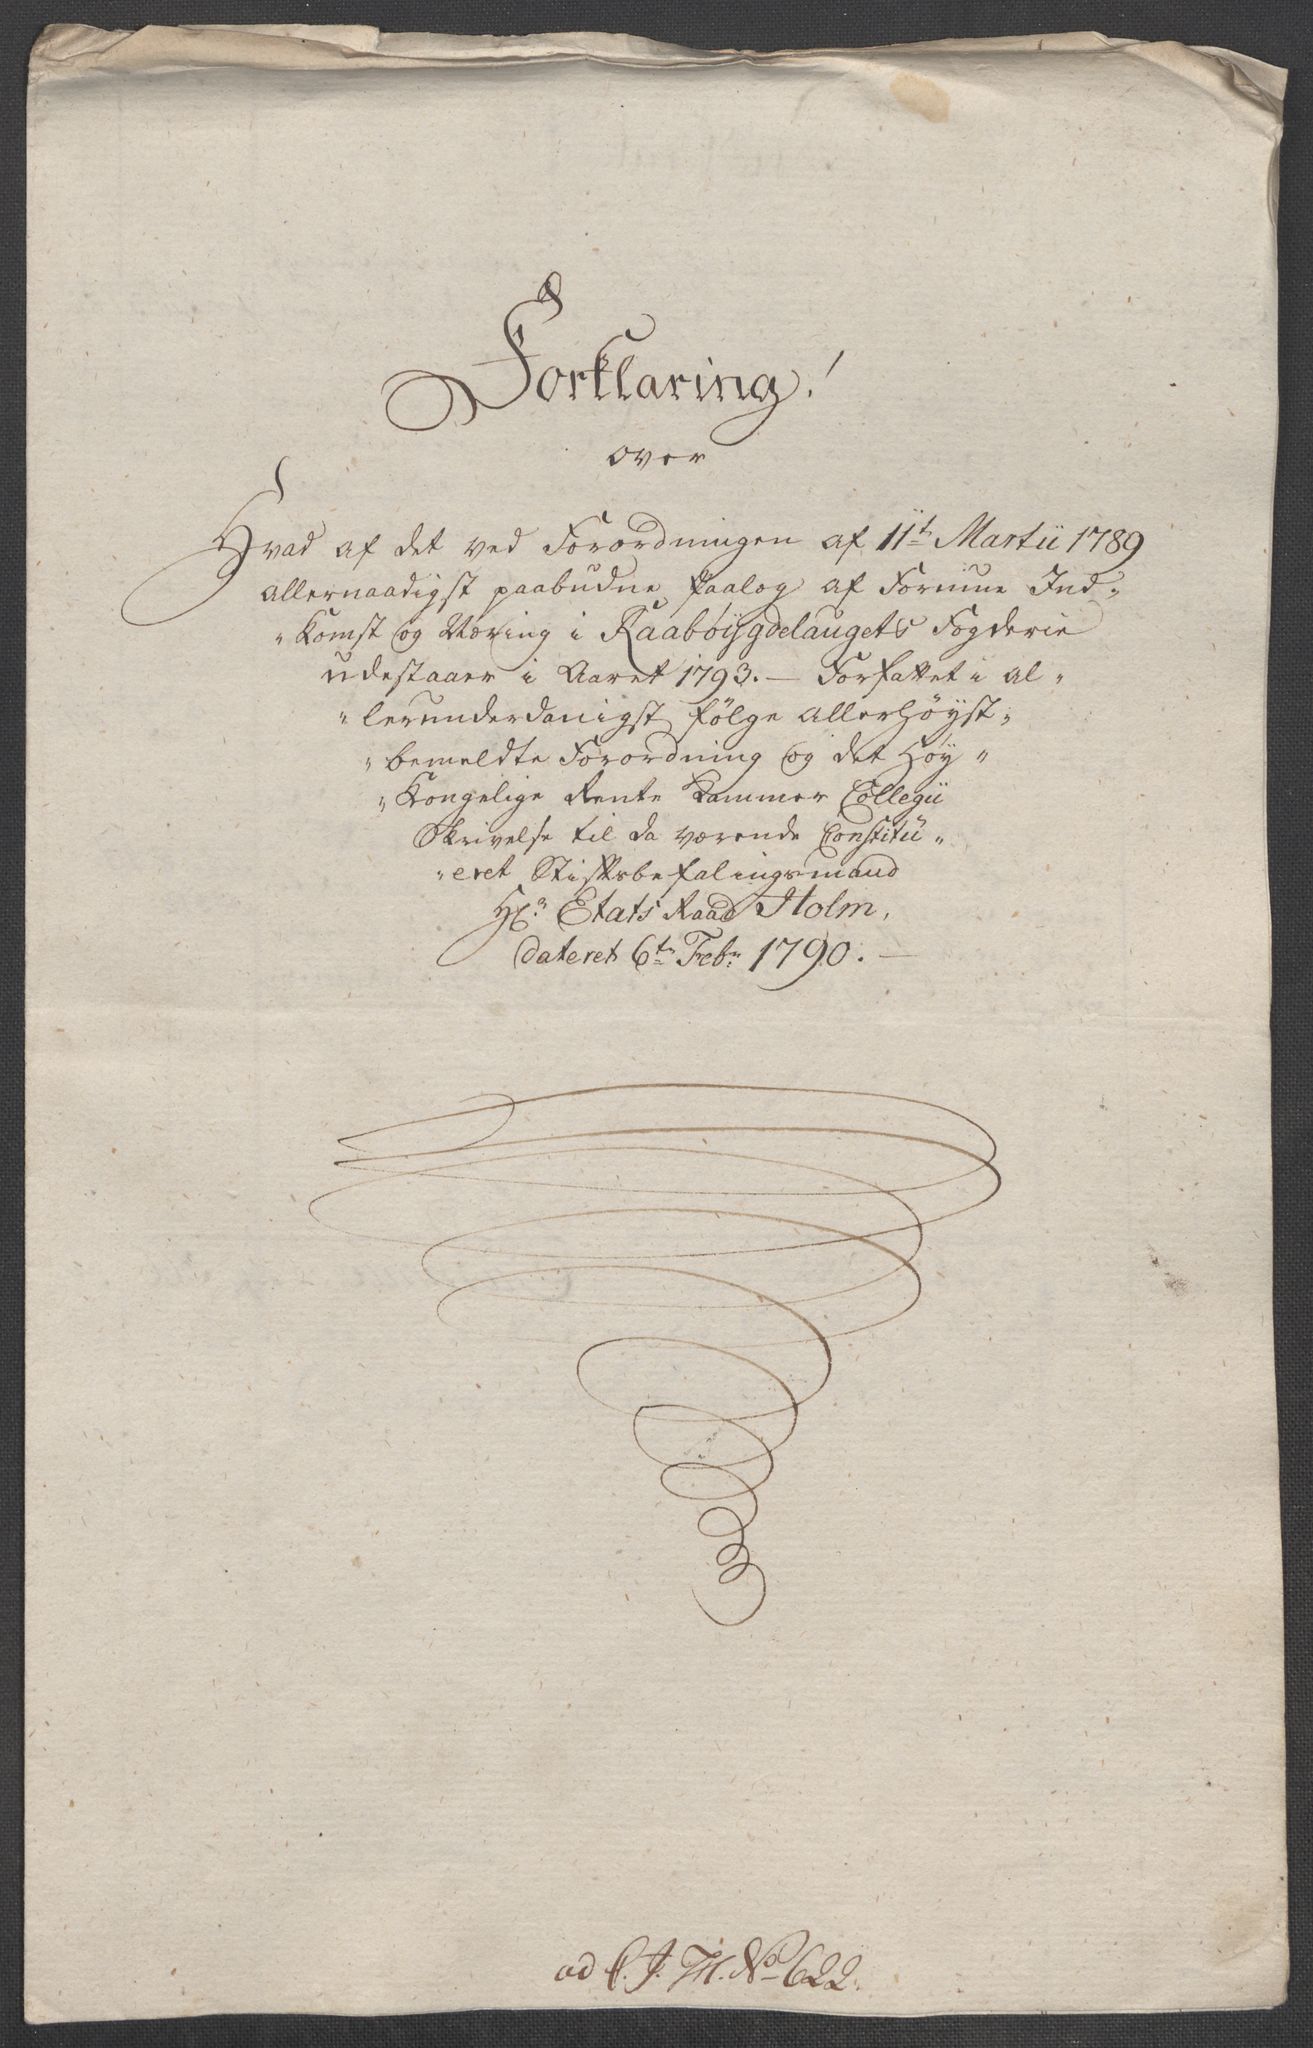 Forklaring!
over
Hvad af det ved Forordningen af 11te Martii 1789
allernaadigst paabudne paalæg af Formue Ind-
"komst og Næring i Raabøijgdelaugets Fogderie
udestaaer i Aaret 1793. — Forfattet i al"
"lerunderdanigst følge allerhöyst"
"bemeldte Forordning og det Höy"
"Kongelige Rente Kammer Collegii
Skrivelse til da værende Constitü"
"eret Stiftsbefalingsmand
Hr. Etats Raad Holm,
dateret 6te Febr. 1790. —
ad No 622.